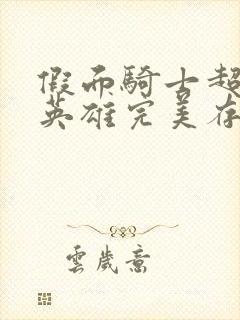 假面騎士超
英雄完美存
雲歲意